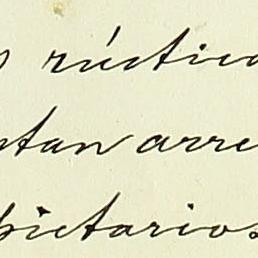 s rústica
ntan arre
pietarios